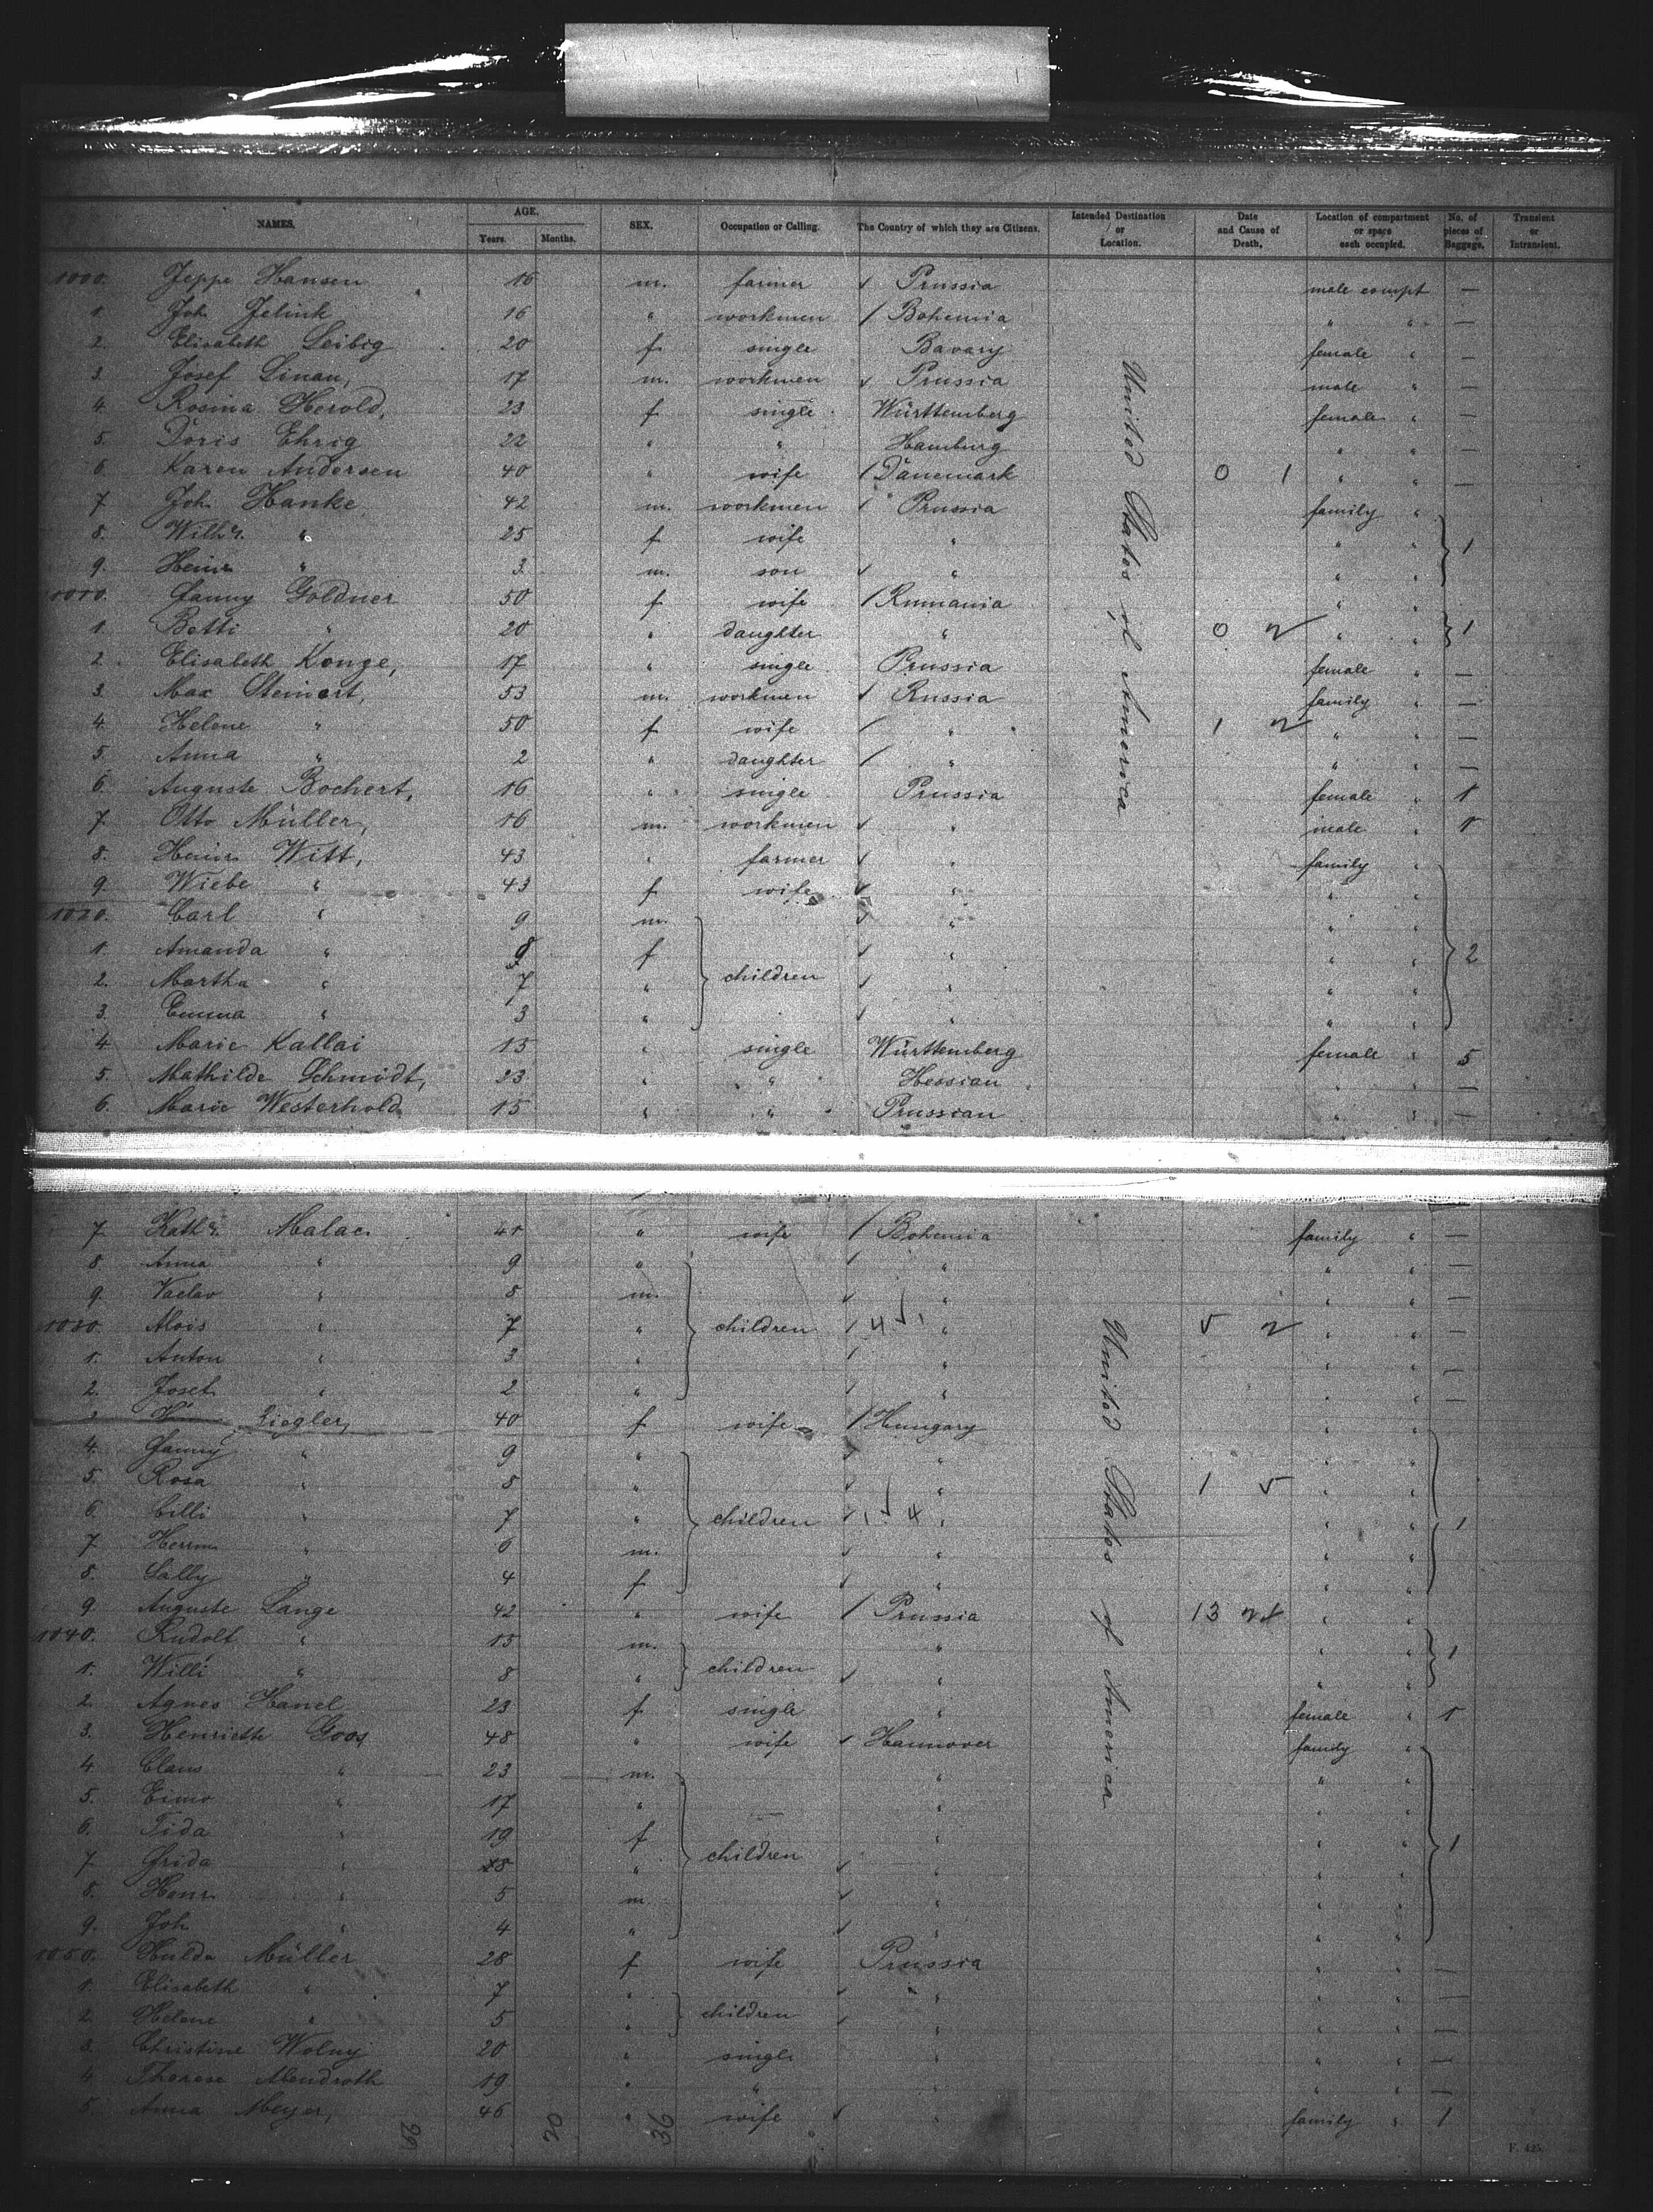 NAMES. AGE. Years. Months. SEX. Occupation or Calling. The Country of which they are Citizens. Intended Destination or Location. Date and Cause of Death. Location of compartment or space each occupied. No. of pieces of Baggage. Transient or Intransient.
1000. Jeppe Hansen 16 m. farmer Prussia male compt —
1. Joh. Jelink 16 " workmen Bohemia " " —
2. Elisabeth Leibig 20 f. single Bavary female " —
3. Josef Linau, 17 m. workmen Prussia male " —
4. Rosina Herold, 23 f. single Württemberg female " —
5. Doris Ehrig 22 " " Hamburg " " —
6. Karen Andersen 40 " wife Dänemark 0 1 " " —
7. Joh. Hanke 42 m. workmen Prussia family "
8. Wilh. " 25 f. wife " " " 1
9. Heinr. " 3 m. son " " "
1010. Fanny Goldner 50 f. wife Rumania " "
1. Betti " 20 " daughter " 0 2 " " 1
2. Elisabeth Konge, 17 " single Prussia female " —
3. Max Steinert, 53 m. workmen Russia family " —
4. Helene " 50 f. wife " 1 2 " " —
5. Anna " 2 " daughter " " " —
6. Auguste Bochert, 16 " single Prussia female " 1
7. Otto Müller, 16 m. workmen " male " 1
8. Heinr. Witt, 43 " farmer " family "
9. Wiebe " 43 f. wife " " "
1020. Carl " 9 m. " " "
1. Amanda " 8 f. " " " 2
2. Martha " 7 " children " " "
3. Emma " 3 " " " "
4. Marie Kallai 15 " single Württemberg female " 5
5. Mathilde Schmidt, 23 " " Hessian " " —
6. Marie Westerhold 15 " " Prussian " " —
United States of America
7. Kath. Malac. 41 " wife Bohemia family " —
8. Anna " 9 " " " " —
9. Vaclav " 8 m. " " " —
1030. Alois " 7 " children 4 " 5 2 " " —
1. Anton " 3 " " " " —
2. Josef " 2 " " " " —
3. Ziegler, 40 f. wife Hungary " "
4. Fanny " 9 " " " "
5. Rosa " 8 " " 1 5 " "
6. Cilli " 7 " children 1 4 " " " 1
7. Herrm. " 6 m. " " "
8. Sally " 4 f. " " "
9. Auguste Lange 42 " wife Prussia 13 " "
1040. Rudolf " 15 m. " " " 1
1. Willi " 8 " children " " "
2. Agnes Hanel 23 f. single " female " 1
3. Henriette Goos 48 " wife Hannover family "
4. Claus " 23 m. " " "
5. Eimo " 17 " " " "
6. Tida " 19 f. " " " 1
7. Frida " 18 " children " " "
8. Henr. " 5 m. " " "
9. Joh. " 4 " " " "
1050. Hulda Müller 28 f. wife Prussia " " —
1. Elisabeth " 7 " " " " —
2. Helene " 5 " children " " " —
3. Christine Wolny 20 " single " " " —
4. Therese Mendroth 19 " " " " " —
5. Anna Meyer, 46 " wife " family " 1
United States of America
29 20 36
F. 425.